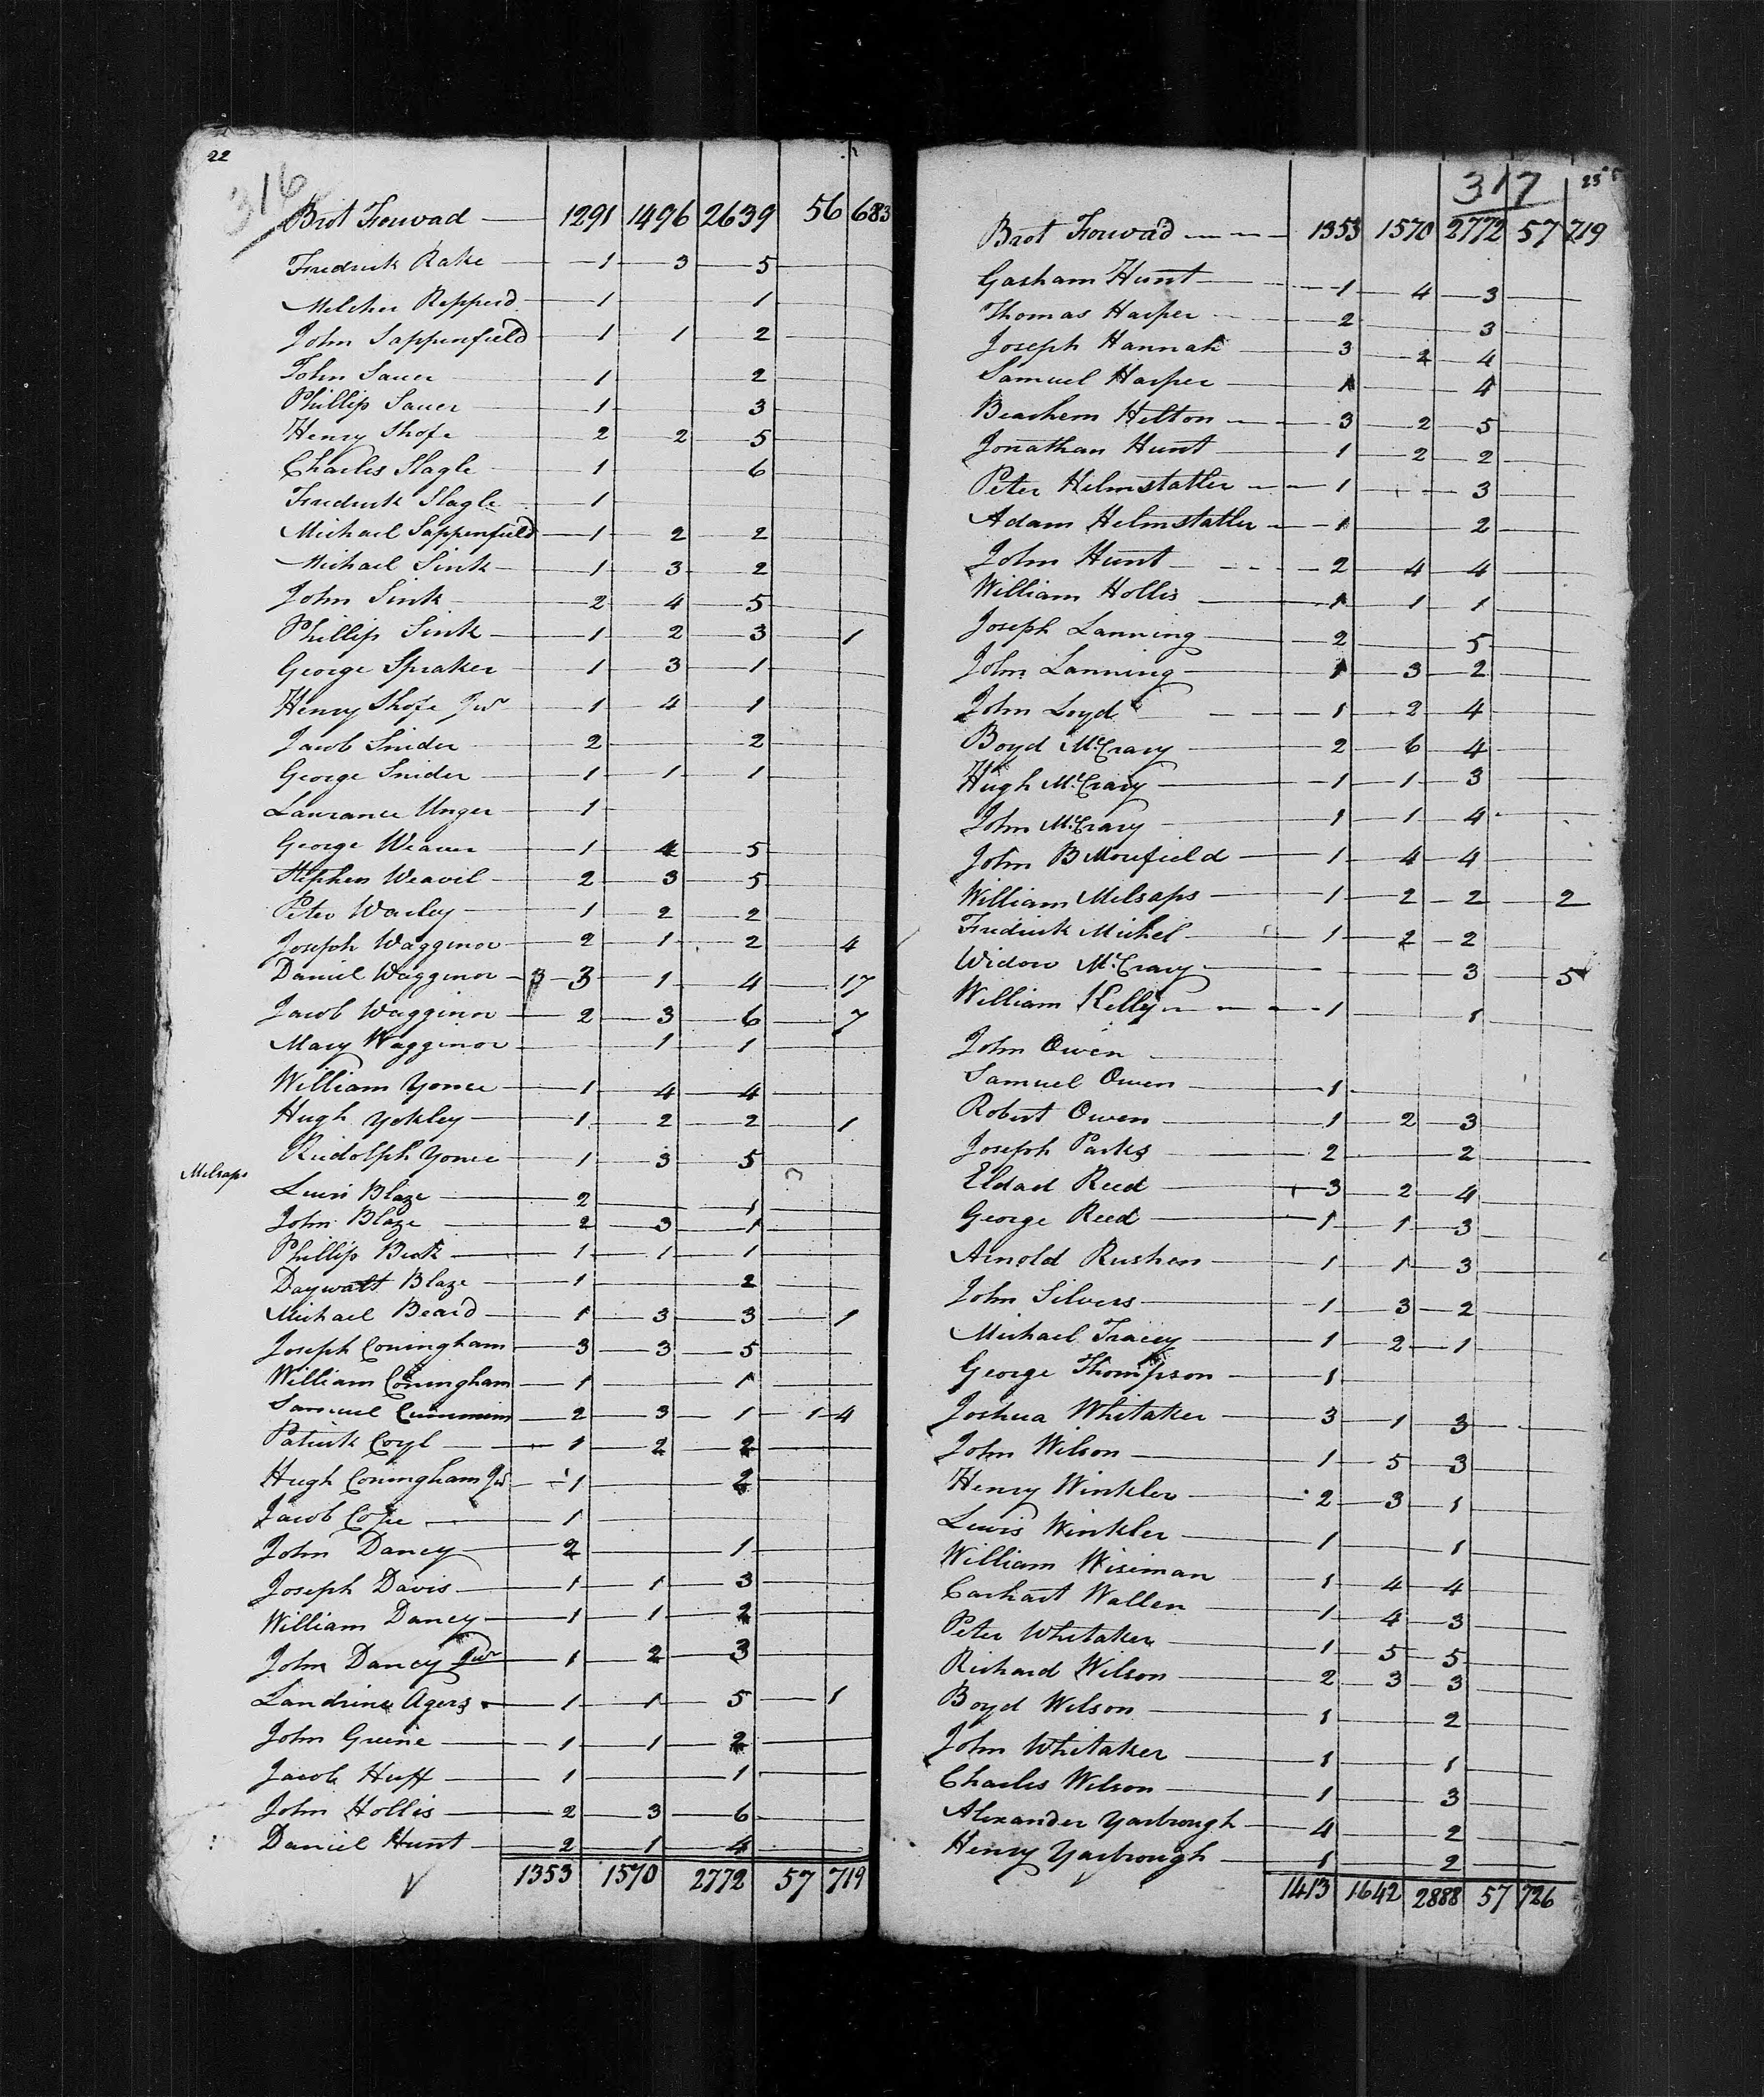 22
316
Brot Forwad 1291 1496 2639 56 683
Fredrick Rake 1 3 5
Melcher Repperd 1 1
John Sappenfield 1 1 2
John Sauer 1 2
Phillip Sauer 1 3
Henry Shofe 2 2 5
Charles Slagle 1 6
Fredrick Slagle 1
Michael Sappenfield 1 2 2
Michael Sink 1 3 2
John Sink 2 4 5
Phillip Sink 1 2 3 1
George Spraker 1 3 1
Henry Shofe Jur 1 4 1
Jacob Snider 2 2
George Snider 1 1 1
Laurance Unger 1
George Weaver 1 4 5
Stephen Weavil 2 3 5
Peter Warley 1 2 2
Joseph Wagginor 2 1 2 4
Daniel Wagginor 3 1 4 17
Jacob Wagginor 2 3 6 7
Mary Wagginor 1 1
William Yonce 1 4 4
Hugh Yokley 1 2 2 1
Rudolph Yonce 1 3 5
Milsaps
Lewis Blaze 2 1
John Blaze 2 3 1
Phillip Beck 1 1 1
Daywalt Blaze 1 2
Michael Beard 1 3 3 1
Joseph Coningham 3 3 5
William Coningham 1 1
Samuel Cummins 2 3 1 1 4
Patrick Coyl 1 2 2
Hugh Coningham Jur 1 2
Jacob Cope 1
John Dancy 2 1
Joseph Davis 1 1 3
William Dancy 1 1 2
John Dancy Jur 1 2 3
Landrine Agers 1 1 5 1
John Greene 1 1 2
Jacob Huff 1 1
John Hollis 2 3 6
Daniel Hunt 2 1 4
1353 1570 2772 57 719
317
23
Brot Forwad 1353 1570 2772 57 719
Gasham Hunt 1 4 3
Thomas Harper 2 3
Joseph Hannah 3 2 4
Samuel Harper 1 4
Beachem Helton 3 2 5
Jonathan Hunt 1 2 2
Peter Helmstatler 1 3
Adam Helmstatler 1 2
John Hunt 2 4 4
William Hollis 1 1 1
Joseph Lanning 2 5
John Lanning 1 3 2
John Loyd 1 2 4
Boyd McCrary 2 6 4
Hugh McCrary 1 1 3
John McCrary 1 1 4
John B Morefield 1 4 4
William Milsaps 1 2 2 2
Fredrick Michel 1 2 2
Widow McCrary 3 5
William Kelly 1 1
John Owen
Samuel Owen 1
Robert Owen 1 2 3
Joseph Parks 2 2
Eldad Reed 3 2 4
George Reed 1 1 3
Arnold Rushen 1 1 3
John Silvers 1 3 2
Michael Tracey 1 2 1
George Thompson 1
Joshua Whitaker 3 1 3
John Wilson 1 5 3
Henry Winkler 2 3 1
Lewis Winkler 1 1
William Wiseman 1 4 4
Carhart Wallen 1 4 3
Peter Whitaker 1 5 5
Richard Wilson 2 3 3
Boyd Wilson 1 2
John Whitaker 1 1
Charles Wilson 1 3
Alexander Yarbrough 4 2
Henry Yarbrough 1 2
1413 1642 2888 57 726